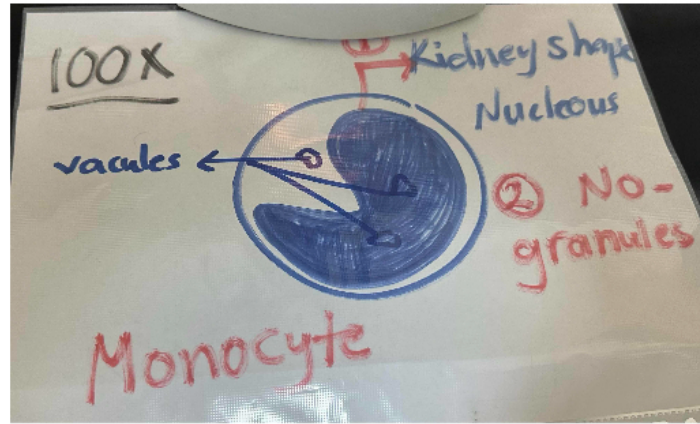 100X
① Kidney shape
Nucleous
vacules
② No-
granules
Monocyte